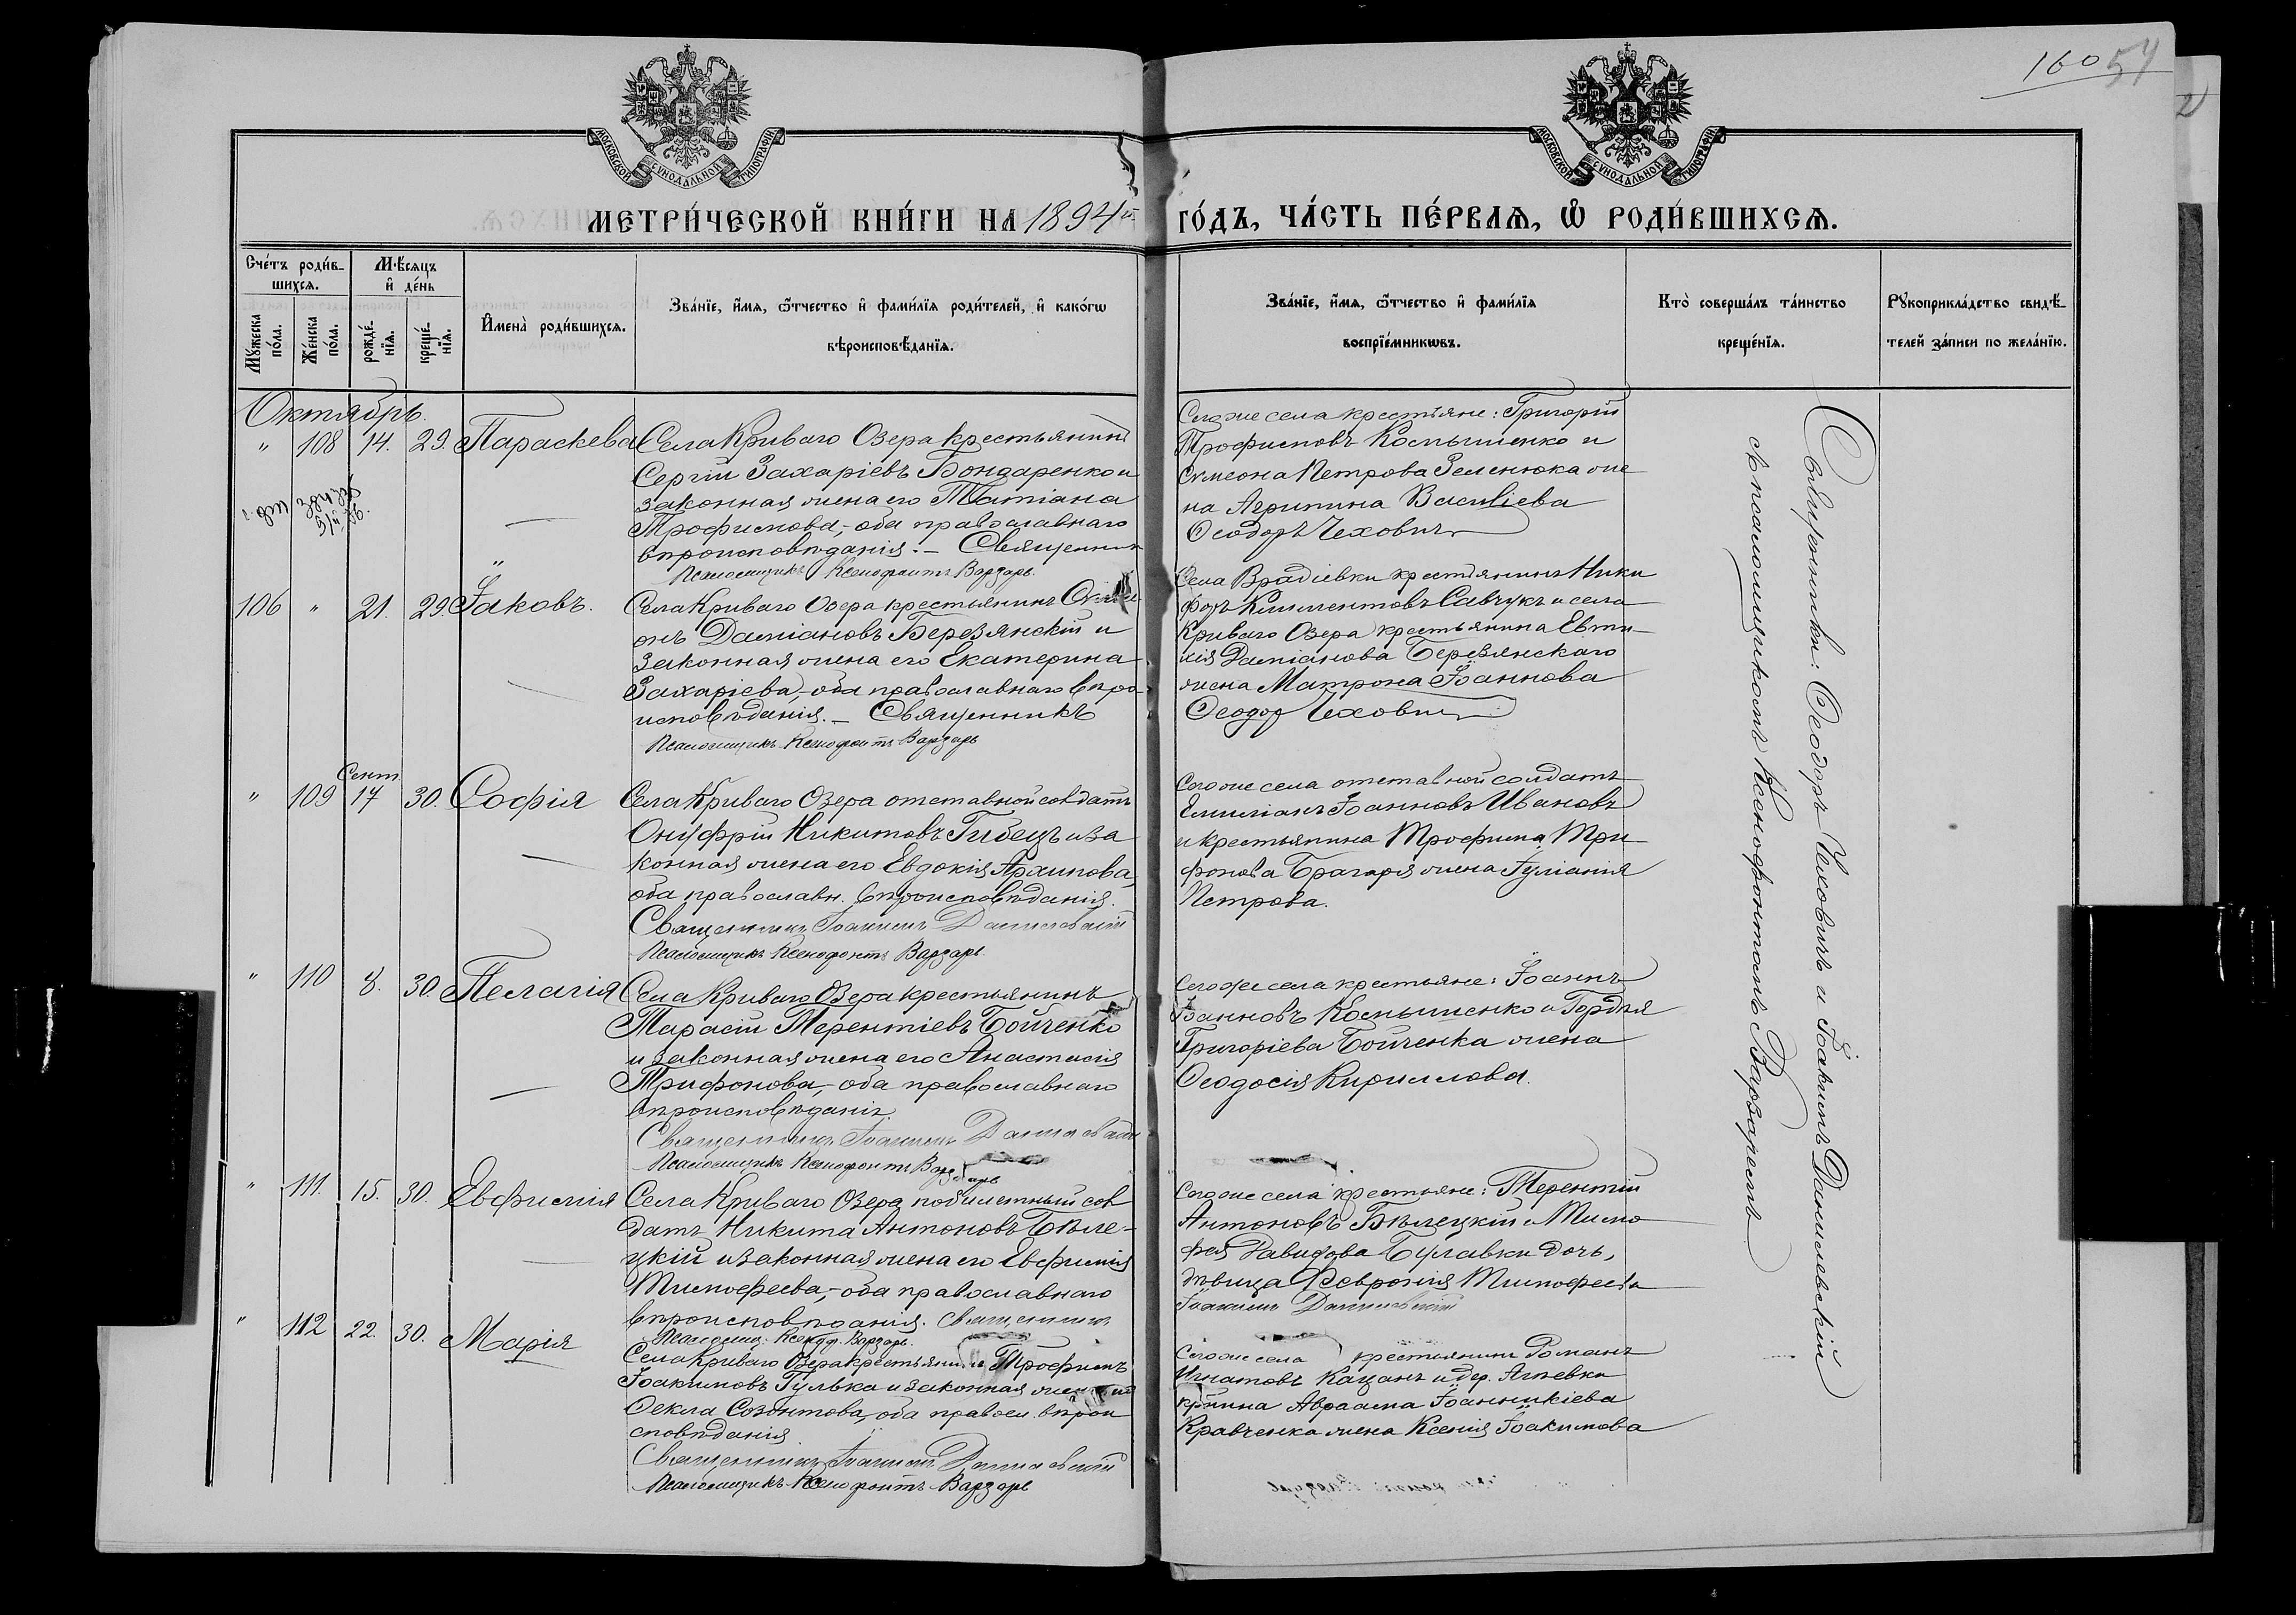 160 54
МОСКОВСКОЙ СѴНОДАЛЬНОЙ ТИПОГРАФІИ
МОСКОВСКОЙ СѴНОДАЛЬНОЙ ТИПОГРАФІИ
МЕТРИ́ЧЕСКОЙ КНИ́ГИ НА 1894й ГО́ДЪ, ЧА́СТЬ ПЕ́РВАѦ, Ѡ҆ РОДИ́ВШИХСѦ.
Сче́тъ роди́в-
шихсѧ.
Мꙋ́жеска по́ла.
Же́нска по́ла.
Мѣ́сѧцъ
и҆ де́нь
рожде́-
нїѧ.
креще́-
нїѧ.
И҆мена̀ роди́вшихсѧ.
Зва́нїе, и҆́мѧ, ѻ҆́тчество и҆ фами́лїѧ роди́телей, и҆ како́гѡ
вѣроисповѣ́данїѧ.
Зва́нїе, и҆́мѧ, ѻ҆́тчество и҆ фами́лїѧ
воспрїе́мникѡвъ.
Кто̀ соверша́лъ та́инство
креще́нїѧ.
Рꙋкоприкла́дство свидѣ́-
телей за́писи по жела́нїю.
Октябрь.
" 108 14. 29. Параскева
Села Криваго Озера крестьянинъ
Сергій Захаріевъ Бондаренко и
законная жена его Татіана
Трофимова,- оба православнаго
вѣроисповѣданія.- Священник
Псаломщикъ Ксенофонтъ Варзарь.
Сегоже села крестьяне: Григорій
Трофимовъ Космыненко и
Симеона Петрова Зеленюка же
на Агрипина Василіева
Ѳеодоръ Чеховичъ
106 " 21. 29. Іаковъ.
Села Криваго Озера крестьянинъ
онъ Даміановъ Березянскій и
законная жена его Екатерина
Захаріева,- оба православнаго вѣро-
исповѣданія.- Священникъ
Псаломщикъ Ксенофонтъ Варзарь
Села Врадіевки крестьянинъ Ники
форъ Климентовъ Савчукъ и села
Криваго Озера крестьянина Евти-
хія Даміанова Березянскаго
жена Матрона Іоаннова
Ѳеодоръ Чеховичъ
" 109 Сент. 17 30. Софія
Села Криваго Озера отставной солдатъ
Онуфрій Никитовъ Гибецъ и за
конная жена его Евдокія Архипова,
оба православн. вѣроисповѣданія.
Священникъ Іоакимъ Данилевскій
Псаломщикъ Ксенофонтъ Варзарь
Сегоже села отставной солдатъ
Емиліанъ Іоанновъ Ивановъ
и крестьянина Трофима Три-
фонова Брагаря жена Іуліанія
Петрова.
" 110 8. 30. Пелагія
Села Криваго Озера крестьянинъ
Тарасій Терентіевъ Бойченко
и законная жена его Анастасія
Трифонова,- оба православнаго
вѣроисповѣданія.
Священникъ Іоакимъ Данилевскій
Псаломщикъ Ксенофонтъ Варзарь
Сегоже села крестьяне: Іоаннъ
Іоанновъ Космыненко и Гордѣя
Григоріева Бойченка жена
Ѳеодосія Кириллова.
" 111. 15. 30. Евфимія
Села Криваго Озера побилетный сол
датъ Никита Антоновъ Бѣле-
цкій и законная жена его Евфимія
Тимофеева,- оба православнаго
вѣроисповѣданія. Священникъ
Псаломщ. Ксеноф. Варзарь.
Сегоже села крестьяне: Терентій
Антоновъ Бѣлецкій и Тимо
фея Давидова Булавки дочь,
дѣвица Февронія Тимофеева
Іоакимъ Данилевскій
" 112 22. 30. Марія
Села Криваго Озера крестьянинъ Трофимъ
Іоакимовъ Гулька и законная жена его
Ѳекла Созонтова, оба правосл. вѣрои
сповѣданія
Священникъ Іоакимъ Данилевскій
Псаломщикъ Ксенофонтъ Варзарь
Сегоже села крестьянинъ Романъ
Игнатовъ Кацанъ и дер.
крѣнина Авраама Іоанникіева
Кравченка жена Ксенія Іоакимова
Священники: Ѳеодоръ Чеховичъ и Іоакимъ Данилевскій
съ псаломщикомъ Ксенофонтомъ Варзаремъ